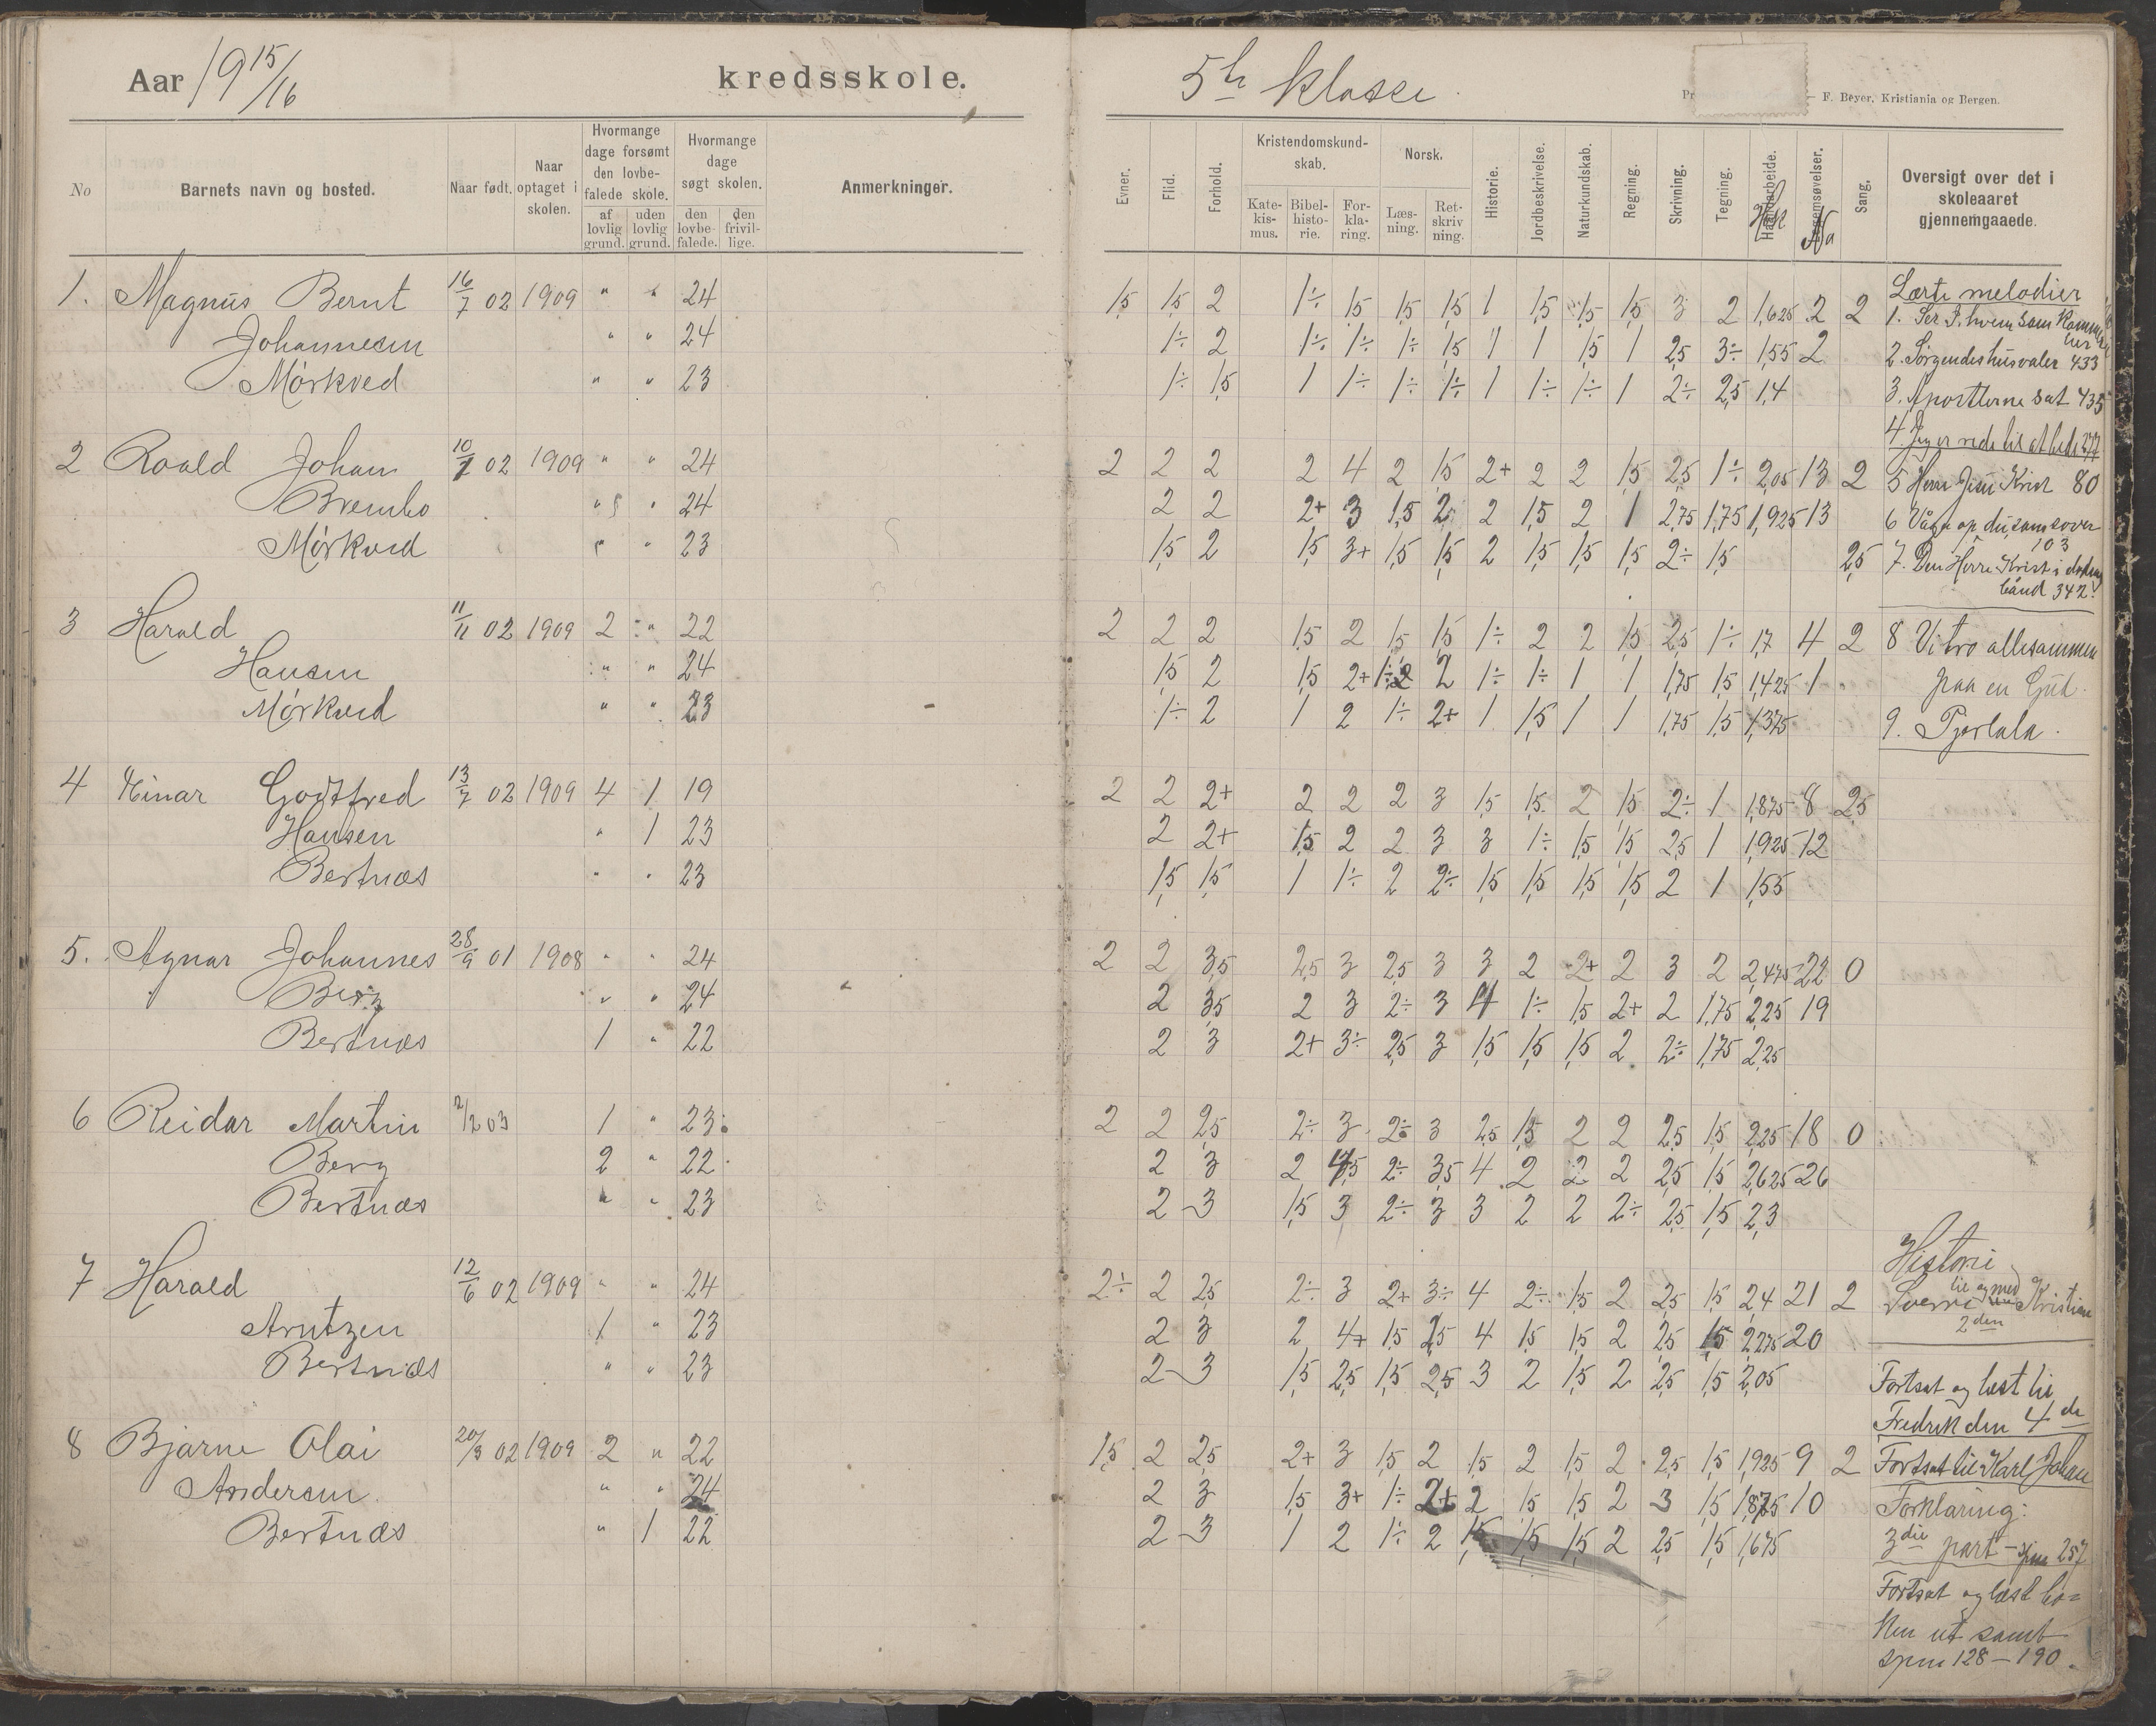 Aar 1915/16 kredsskole. 5te klasse
F. Beyer, Kristiania og Bergen.
No Barnets navn og bosted. Naar født. Naar optaget i skolen. Hvormange dage forsømt den lovbefalede skole. af lovlig grund. uden lovlig grund. Hvormange dage søgt skolen. den lovbefalede. den frivillige. Anmerkninger.
Evner. Flid. Forhold. Kristendomskundskab. Katekismus. Bibelhistorie. Forklaring. Norsk. Læsning. Retskrivning. Historie. Jordbeskrivelse. Naturkundskab. Regning. Skrivning. Tegning. Haandarbeide. Sang. Oversigt over det i skoleaaret gjennemgaaede.
1. Magnus Bernt 16/7 02 1909 " " 24
Johannesen " " 24
Mørkved " " 23
2 Roald Johan 10/7 02 1909 " " 24
Brembo " " 24
Mørkved " " 23
3 Harald 11/11 02 1909 2 " 22
Hansen " " 24
Mørkved " " 23
4 Einar Godtfred 13/7 02 1909 4 1 19
Hansen " 1 23
Bertnæs " " 23
5. Agnar Johannes 28/9 01 1908 " " 24
Berg " " 24
Bertnæs 1 " 22
6 Reidar Martin 2/12 03 1 " 23
Berg 2 " 22
Bertnæs " " 23
7 Harald 12/6 02 1909 " " 24
Arntzen 1 " 23
Bertnæs " " 23
8 Bjarne Olai 20/3 02 1909 2 " 22
Andersen " " 24
Bertnæs " 1 22
1,5 1,5 2 1÷ 1,5 1,5 1,5 1 1,5 1,5 1,5 3 2 1,625 2 2
1÷ 2 1÷ 1÷ 1÷ 1,5 1 1 1,5 1 2,5 3÷ 1,55 2
1÷ 1,5 1 1÷ 1÷ 1÷ 1 1÷ 1÷ 1 2÷ 2,5 1,4
2 2 2 2 4 2 1,5 2+ 2 2 1,5 2,5 1÷ 2,05 13 2
2 2 2+ 3 1,5 2 2 1,5 2 1 2,75 1,75 1,925 13
1,5 2 1,5 3+ 1,5 1,5 2 1,5 1,5 1,5 2÷ 1,5 2,5
2 2 2 1,5 2 1,5 1,5 1÷ 2 2 1,5 2,5 1÷ 1,7 4 2
1,5 2 1,5 2+ 2 1÷ 1÷ 1 1 1,75 1,5 1,425 1
1÷ 2 1 2 1÷ 2+ 1 1,5 1 1 1,75 1,5 1,375
2 2 2+ 2 2 2 3 1,5 1,5 2 1,5 2÷ 1 1,875 8 2,5
2 2+ 1,5 2 2 3 3 1÷ 1,5 1,5 2,5 1 1,925 12
1,5 1,5 1 1÷ 2 2÷ 1,5 1,5 1,5 1,5 2 1 1,55
2 2 3,5 2,5 3 2,5 3 3 2 2+ 2 3 2 2,475 22 0
2 3,5 2 3 2÷ 3 4 1÷ 1,5 2+ 2 1,75 2,25 19
2 3 2+ 3÷ 2,5 3 1,5 1,5 1,5 2 2÷ 1,75 2,25
2 2 2,5 2÷ 3 2÷ 3 2,5 1,5 2 2 2,5 1,5 2,25 18 0
2 3 2 4,5 2÷ 3,5 4 2 2 2 2,5 1,5 2,625 26
2 3 1,5 3 2÷ 3 3 2 2 2÷ 2,5 1,5 2,3
2÷ 2 2,5 2÷ 3 2+ 3÷ 4 2÷ 1,5 2 2,5 1,5 2,4 21 2
2 3 2 4+ 1,5 2,5 4 1,5 1,5 2 2,5 1,5 2,275 20
2 3 1,5 2,5 1,5 2,5 3 2 1,5 2 2,5 1,5 2,05
1,5 2 2,5 2+ 3 1,5 2 1,5 2 1,5 2 2,5 1,5 1,925 9 2
2 3 1,5 3+ 1÷ 2+ 2 1,5 1,5 2 3 1,5 1,875 10
2 3 1 2 1÷ 2 1,5 1,5 1,5 2 2,5 1,5 1,675
Lærte melodier
1. Ser hvem som kommer
her
2. Sørgendes husvaler 433
3. Apostlerne sat 435
4. Jeg er rede til at bede 277
5 Herre Jesu Krist 80
6 Vågn op du som sover
103
7. Den Herre Krist i dødens
bånd 342.
8 Vi tro allesammen
paa en Gud.
9. Pjorlala.
Historie
Sverre til og med Kristian
2den
Fortsat og læst til
Fredrik den 4de
Fortsat til Karl Johan
Forklaring:
3die part - spm 257
Fortsat og læst bo=
ken ut samt
spm 128 - 190.